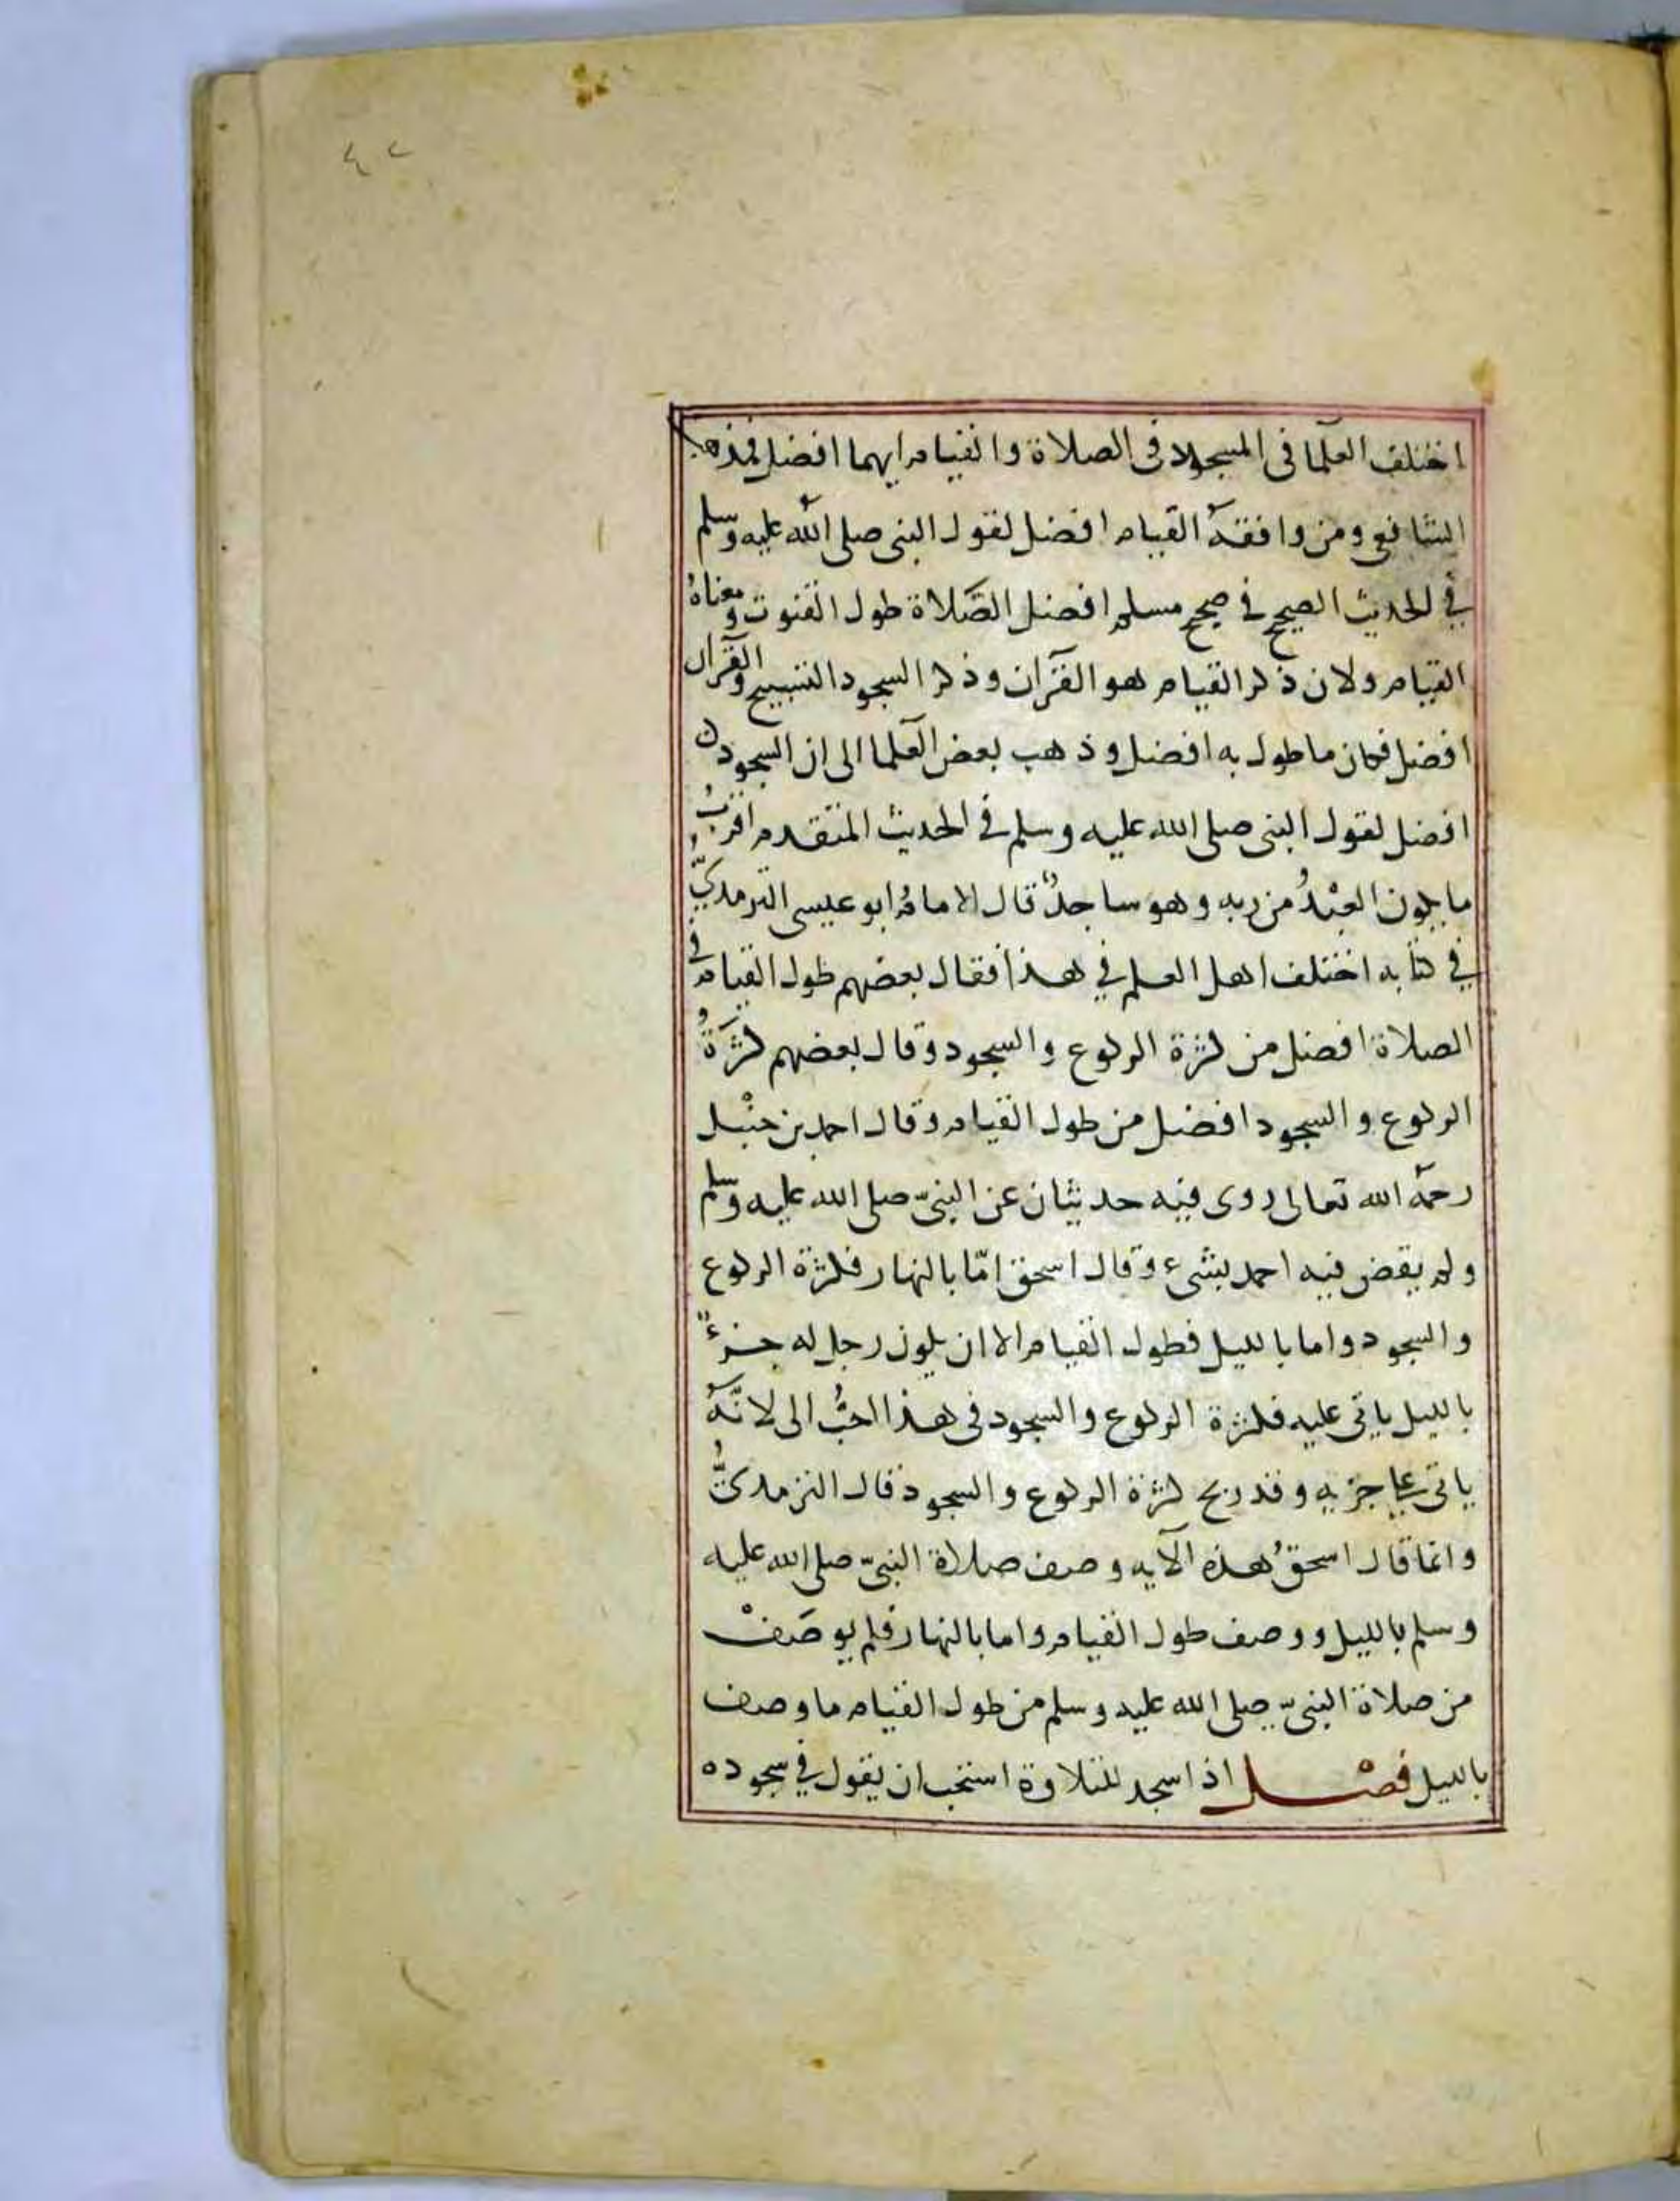 ٤٢
اختلف العلما فى السجود فى الصلاة والقيام ايهما افضل فمذهب
الشافعى ومن وافقه القيام افضل لقول النبى صلى الله عليه وسلم
في الحديث الصحيح في صحيح مسلم افضل الصَّلاة طول القنوت ومعناهُ
القيام ولان ذكر القيام هو القرآن وذكر السجود التسبيح والقرآن
افضل فكان ما طول به افضل وذهب بعض العلما الى ان السجود
افضل لقول النبى صلى الله عليه وسلم في الحديث المتقدم اقربُ
ما يكون العبْدُ من ربه وهو ساجدٌ قال الامامُ ابو عيسى الترمذيّ
في كتابه اختلف اهل العلم في هذا فقال بعضهم طول القيام في
الصلاة افضل من كثرة الركوع والسجود وقال بعضهم كثرَةُ
الركوع والسجود افضل من طول القيام وقال احمد بن حنْبل
رحمه الله تعالى روى فيه حديثان عن النبىّ صلى الله عليه وسلم
ولم يقض فيه احمد بشىء وقال اسحق امّا بالنهار فكثرة الركوع
والسجود واما بالليل فطول القيام الا ان يكون رجل له جزءٌ
بالليل ياتى عليه فكثرة الركوع والسجود فى هذا احبُّ الى لانَّهُ
ياتى على جزيه وقد ربح كثرة الركوع والسجود قال الترمذىُّ
وانما قال اسحقُ هذه الآيه وصف صلاة النبىّ صلى الله عليه
وسلم بالليل ووصف طول القيام واما بالنهار فلم يوصَفْ
من صلاة النبىّ صلى الله عليه وسلم من طول القيام ما وصف
بالليل فصْل اذا سجد للتلاوة استحب ان يقول في سجوده